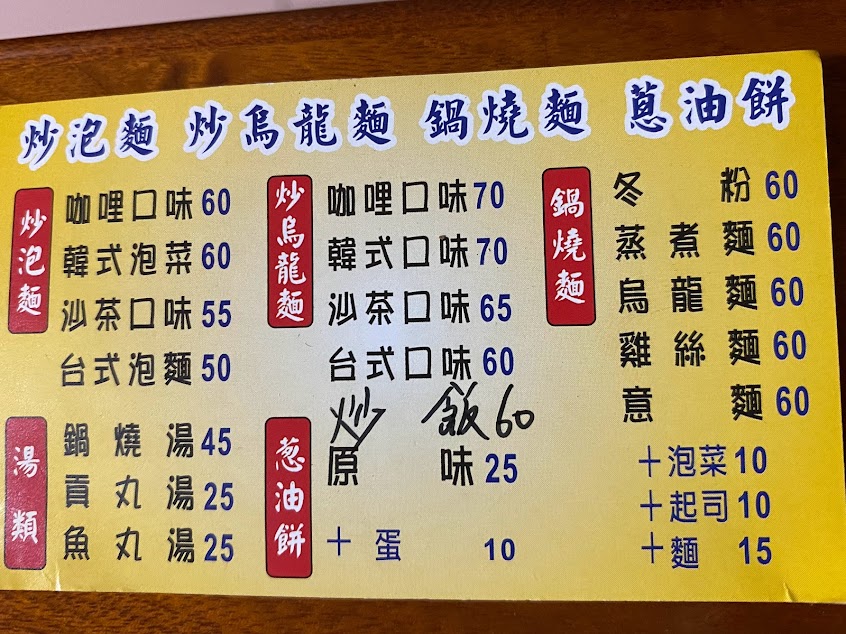 炒泡麵 炒烏龍麵 鍋燒麵 蔥油餅
炒泡麵
咖哩口味 60
韓式泡菜 60
沙茶口味 55
台式泡麵 50
炒烏龍麵
咖哩口味 70
韓式口味 70
沙茶口味 65
台式口味 60
炒飯 60
鍋燒麵
冬粉 60
蒸煮麵 60
烏龍麵 60
雞絲麵 60
意麵 60
+泡菜 10
+起司 10
+麵 15
湯類
鍋燒湯 45
貢丸湯 25
魚丸湯 25
葱油餅
原味 25
+蛋 10